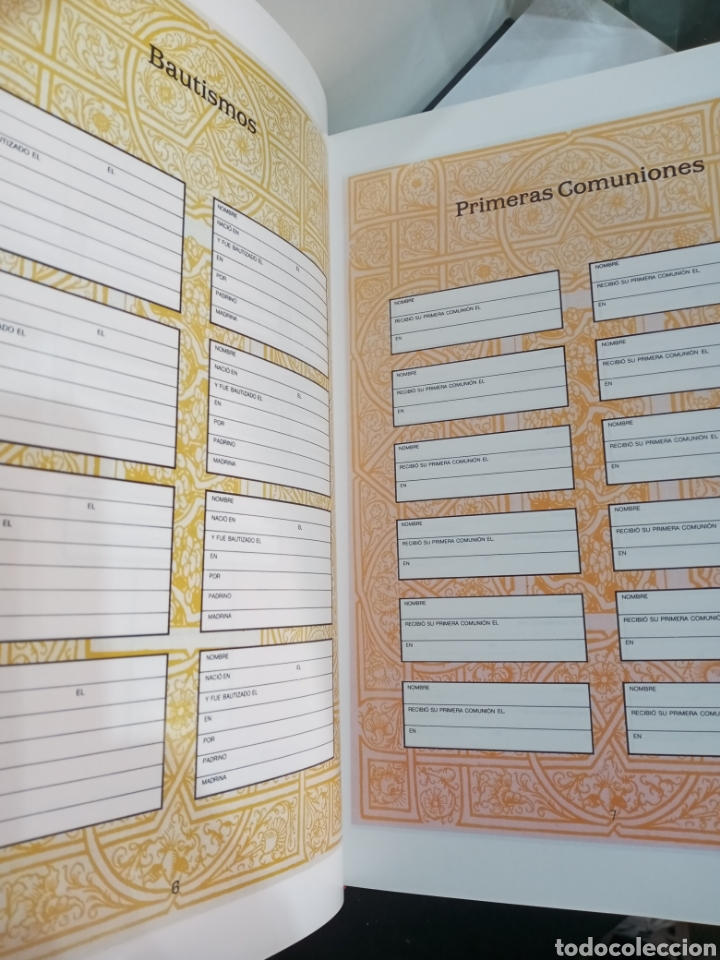 Bautismos
TIZADO EL EL
EL
TIZADO EL
EL
EL
EL
NOMBRE
NACIÓ EN EL
Y FUE BAUTIZADO EL
EN
POR
PADRINO
MADRINA
NOMBRE
NACIÓ EN EL
Y FUE BAUTIZADO EL
EN
POR
PADRINO
MADRINA
NOMBRE
NACIÓ EN EL
Y FUE BAUTIZADO EL
EN
POR
PADRINO
MADRINA
NOMBRE
NACIÓ EN EL
Y FUE BAUTIZADO EL
EN
POR
PADRINO
MADRINA
6
Primeras Comuniones
NOMBRE
RECIBIÓ SU PRIMERA COMUNIÓN EL
EN
NOMBRE
RECIBIÓ SU PRIMERA COMUNIÓN EL
EN
NOMBRE
RECIBIÓ SU PRIMERA COMUNIÓN EL
EN
NOMBRE
RECIBIÓ SU PRIMERA COMUNIÓN EL
EN
NOMBRE
RECIBIÓ SU PRIMERA COMUNIÓN EL
EN
NOMBRE
RECIBIÓ SU PRIMERA COMUNIÓN EL
EN
NOMBRE
RECIBIÓ SU PRIMERA COMUNIÓN EL
EN
NOMBRE
RECIBIÓ SU PRIMERA COMUNIÓN EL
EN
NOMBRE
RECIBIÓ SU PRIMERA COMUNIÓN EL
EN
NOMBRE
RECIBIÓ SU PRIMERA COMUNIÓN EL
EN
NOMBRE
RECIBIÓ SU PRIMERA COMUNIÓN EL
EN
NOMBRE
RECIBIÓ SU PRIMERA COMUNIÓN EL
EN
7
todocoleccion.net